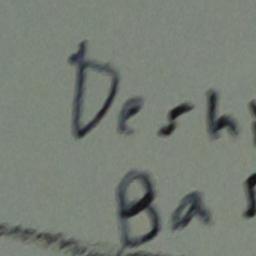 Deshi
Bas